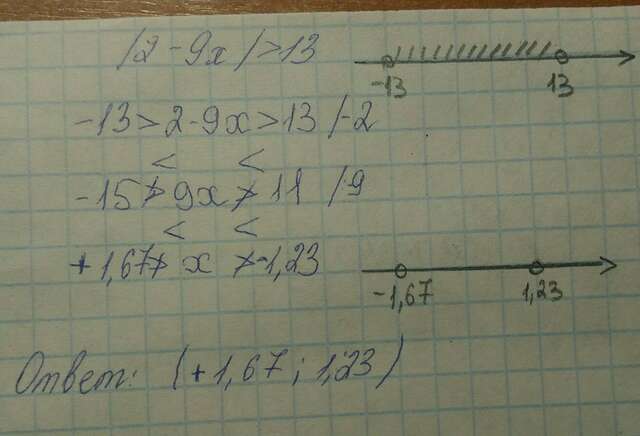 |2-9x|>13
-13 13
-13>2-9x>13 |-2
< <
-15>9x>11 |9
< <
+1,67>x>-1,23
-1,67 1,23
Ответ: (+1,67; 1,23)